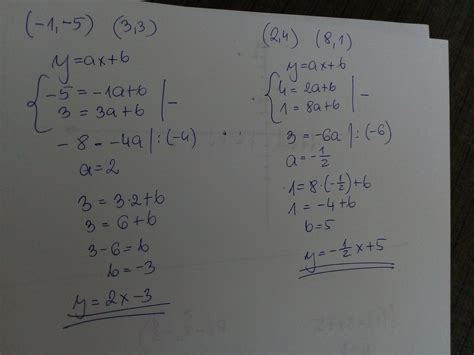 (-1,-5) (3,3)
y=ax+b
-5 = -1a+b |-
3 = 3a+b
-8 = -4a |:(-4)
a=2
3 = 3·2+b
3 = 6+b
3-6=b
b=-3
y=2x-3
(2,4) (8,1)
y=ax+b
4 = 2a+b |-
1 = 8a+b
3 = -6a |:(-6)
a=-1/2
1=8·(-1/2)+b
1=-4+b
b=5
y=-1/2x+5